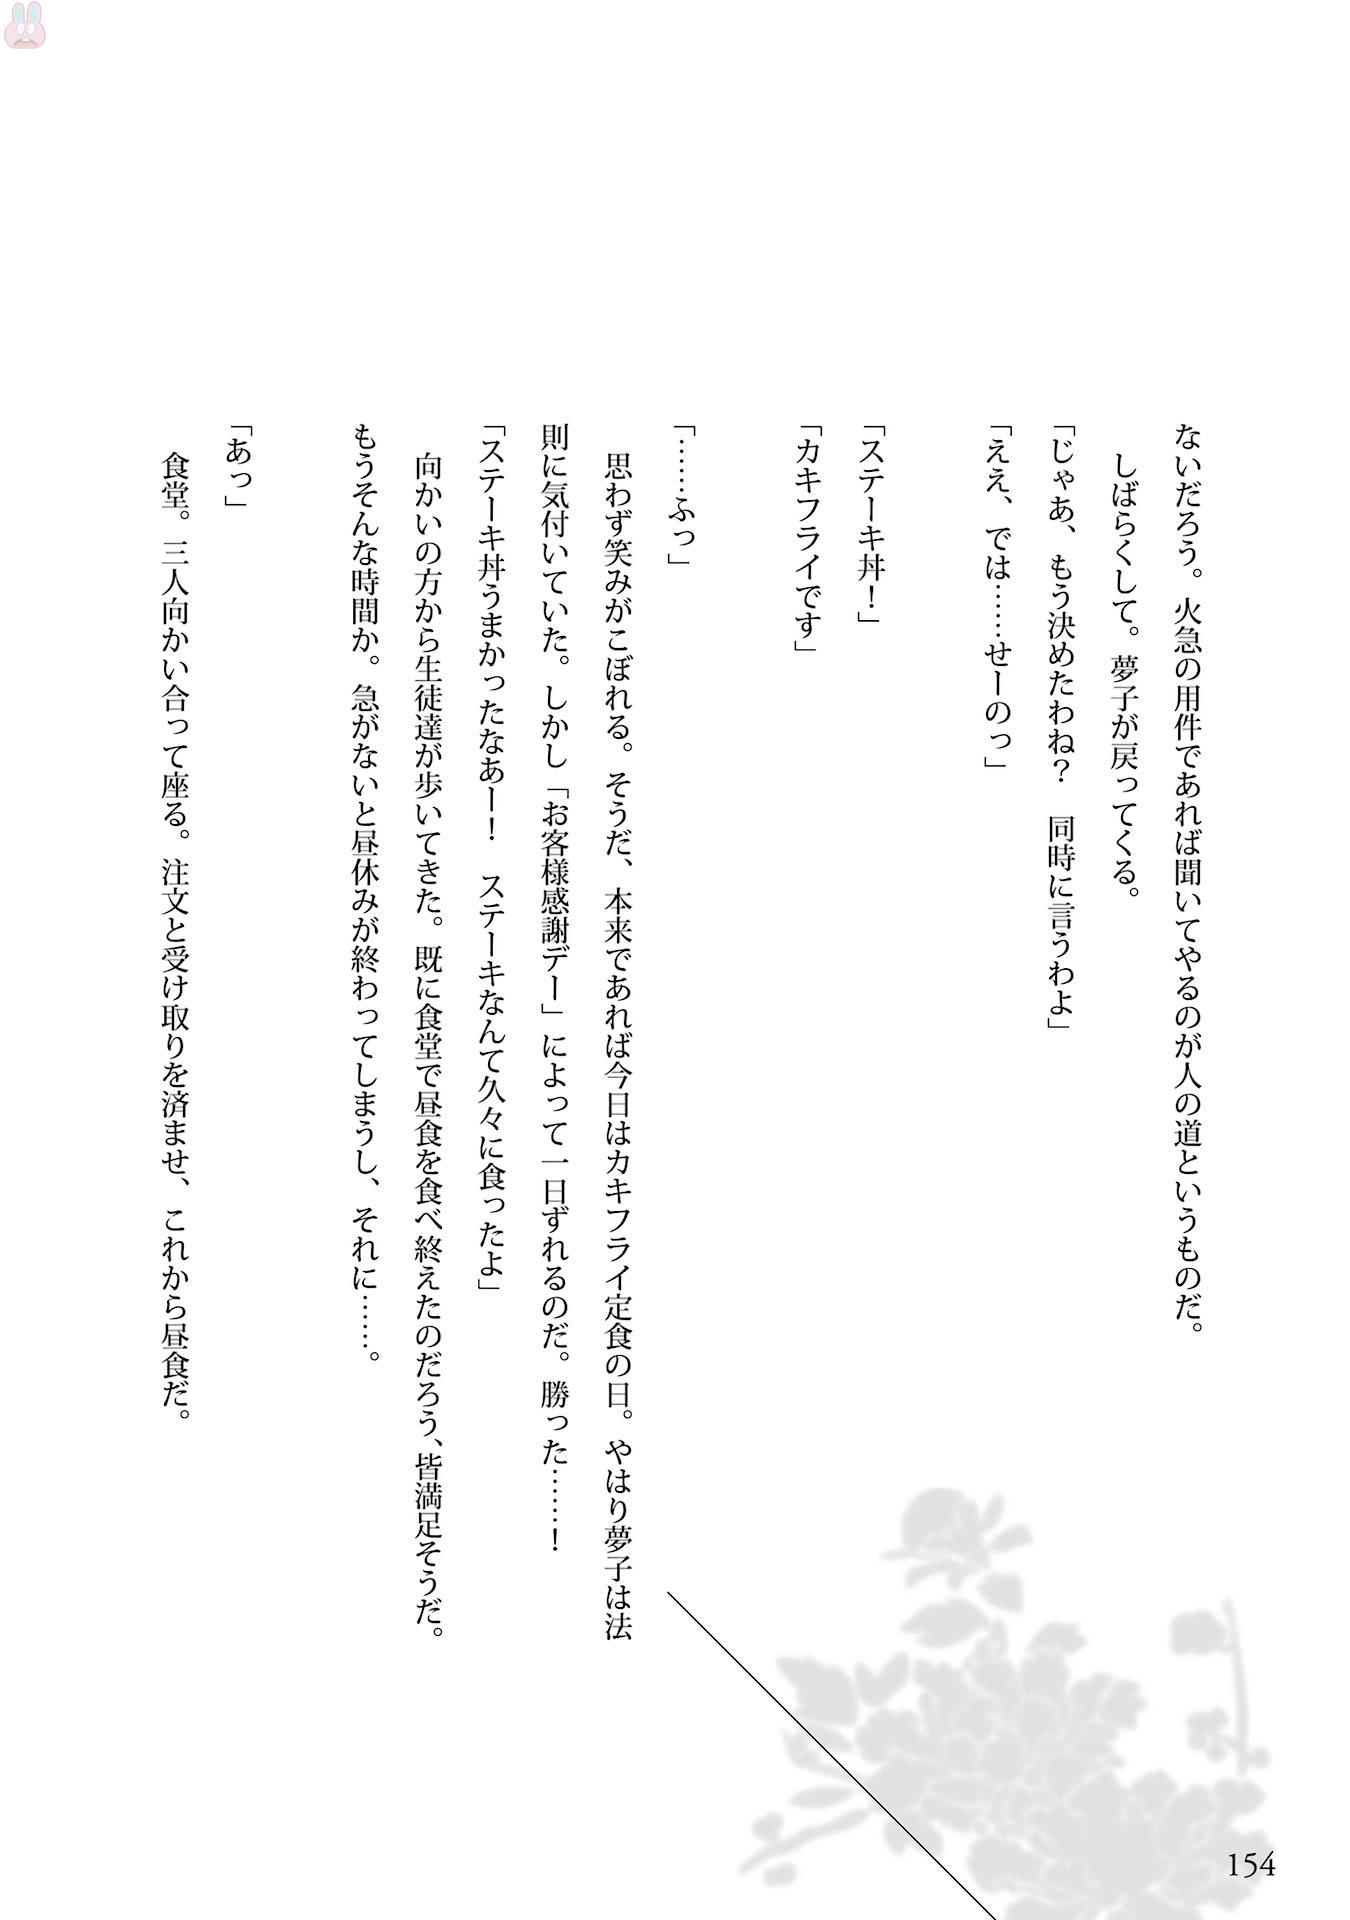 ないだろう。火急の用件であれば聞いてやるのが人の道というものだ。
しばらくして。夢子が戻ってくる。
「じゃあ、もう決めたわね?　同時に言うわよ」
「ええ、では……せーのっ」
「ステーキ丼!」
「カキフライです」
「……ふっ」
思わず笑みがこぼれる。そうだ、本来であれば今日はカキフライ定食の日。やはり夢子は法
則に気付いていた。しかし「お客様感謝デー」によって一日ずれるのだ。勝った……!
「ステーキ丼うまかったなあー!　ステーキなんて久々に食ったよ」
向かいの方から生徒達が歩いてきた。既に食堂で昼食を食べ終えたのだろう、皆満足そうだ。
もうそんな時間か。急がないと昼休みが終わってしまうし、それに……。
「あっ」
食堂。三人向かい合って座る。注文と受け取りを済ませ、これから昼食だ。
154